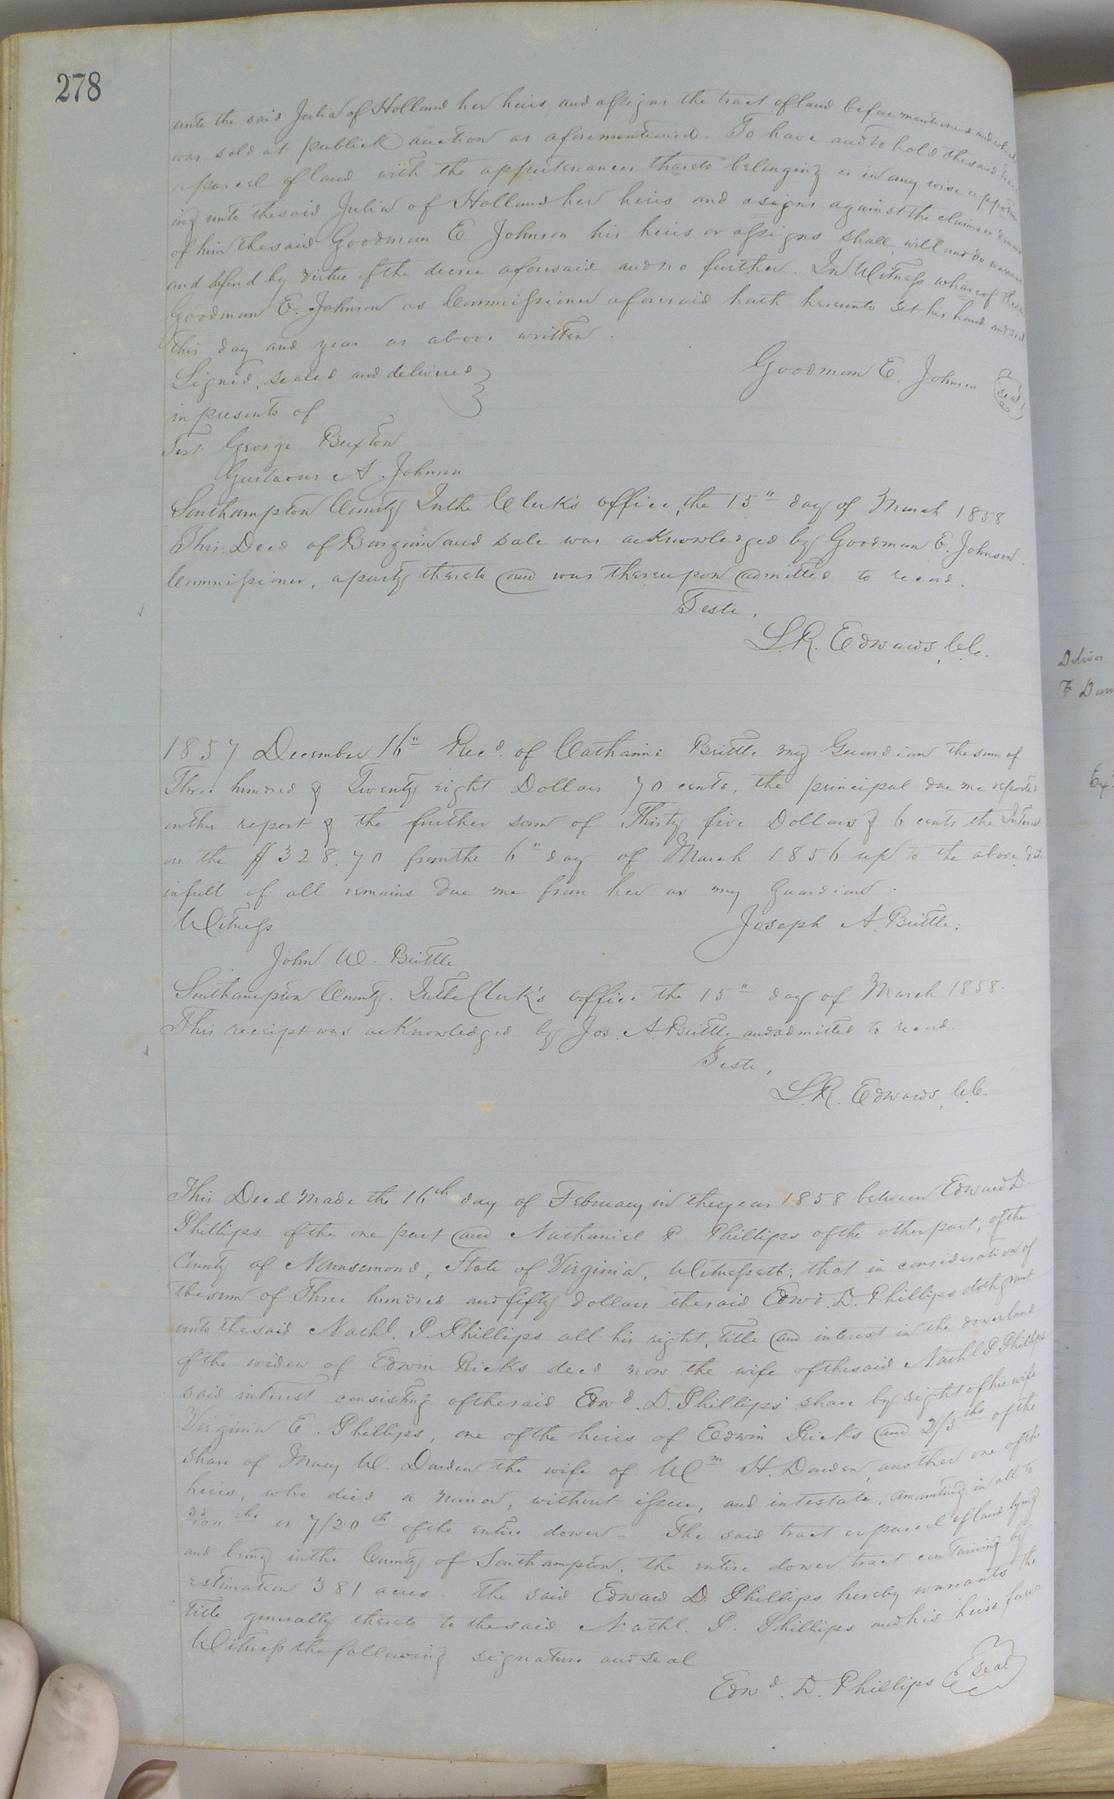 278
unto the said Julia of Holland her heirs and assigns the tract of land before mentioned and which
was sold at publick auction as aforementioned. To have and to hold the said tract
or parcel of land with the appurtenances thereto belonging or in any wise appertain
ing unto the said Julia of Holland her heirs and asigns against the claims or demands
of him the said Goodman E Johnson his heirs or assigns shall will and do warrant
and defend by virtue of the decree aforesaid and no further. In Witness whereof the said
Goodman E. Johnson as Commissioner aforesaid hath hereunto set his hand and seal
this day and year as above written.
Signed, sealed and delivered Goodman E. Johnson seal
in presents of
Test George Buxton
Gustavus A. Johnson
Southampton County In the Clerk's office, the 15" day of March 1858
This Deed of Bargain and sale was acknowledged by Goodman E. Johnson.
Commissioner, a party thereto and was thereupon admitted to record.
Teste,
L.R. Edwards, C.C.
1857 December 16" Recd. of Catharine Brittle my Guardian the sum of
Three hundred & Twenty eight Dollars 70 cents, the principal due me reported
in the report & the further sum of Thirty five Dollars & 6 cents the Interest
on the $328.70 from the 6" day of March 1856 up to the above date
in full of all remains due me from her as my Guardian.
Witness Joseph A. Brittle.
John W. Brittle
Southampton County. In the Clerk's office the 15" day of March 1858.
This receipt was acknowledged by Jos. A. Brittle and admitted to record.
Teste,
L.R. Edwards, C.C.
This Deed made the 16th day of February in the year 1858 between Edward D
Phillips of the one part and Nathaniel P. Phillips of the other part, of the
County of Nansemond, State of Virginia, Witnesseth; that in consideration of
the sum of Three hundred and fifty dollars the said Edwd. D. Phillips doth grant
unto the said Nathl. P. Phillips all his right, title and interest in the dower land
of the widow of Edwin Ricks decd now the wife of the said Nathl P Phillips
said interest consisting of the said Edwd. D. Phillips' share by right of his wife
Virginia E. Phillips, one of the heirs of Edwin Ricks and 2/5ths of the
share of Mary W. Darden the wife of Wm H. Darden, another one of the
heirs, who died a minor, without issue, and intestate, amounting in all to
ths or 7/20th of the entire dower - The said tract or parcel of land lying
and being in the County of Southampton, the entire dower tract containing by
estimation 381 acres. The said Edward D. Phillips hereby warrants the
title generally thereto to the said Nathl. P. Phillips and his heirs forever
Witness the following signature and seal
Edwd. D. Phillips seal